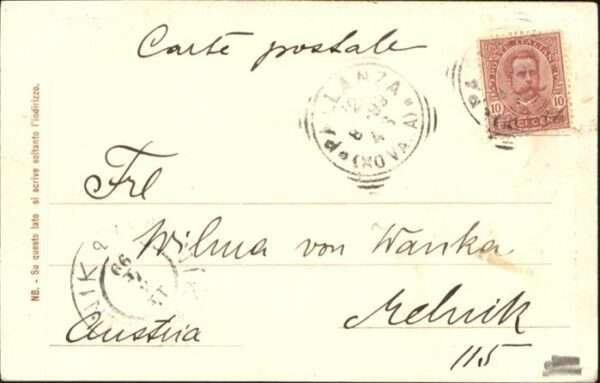 Carte postale
POSTE ITALIANE
10 10
DIECI CENT
PALLANZA
(NOVARA)
NB. - Su questo lato si scrive soltanto l'indirizzo.
Frl
Wilma von Wanka
NIK
99
Austria
Melnik
115